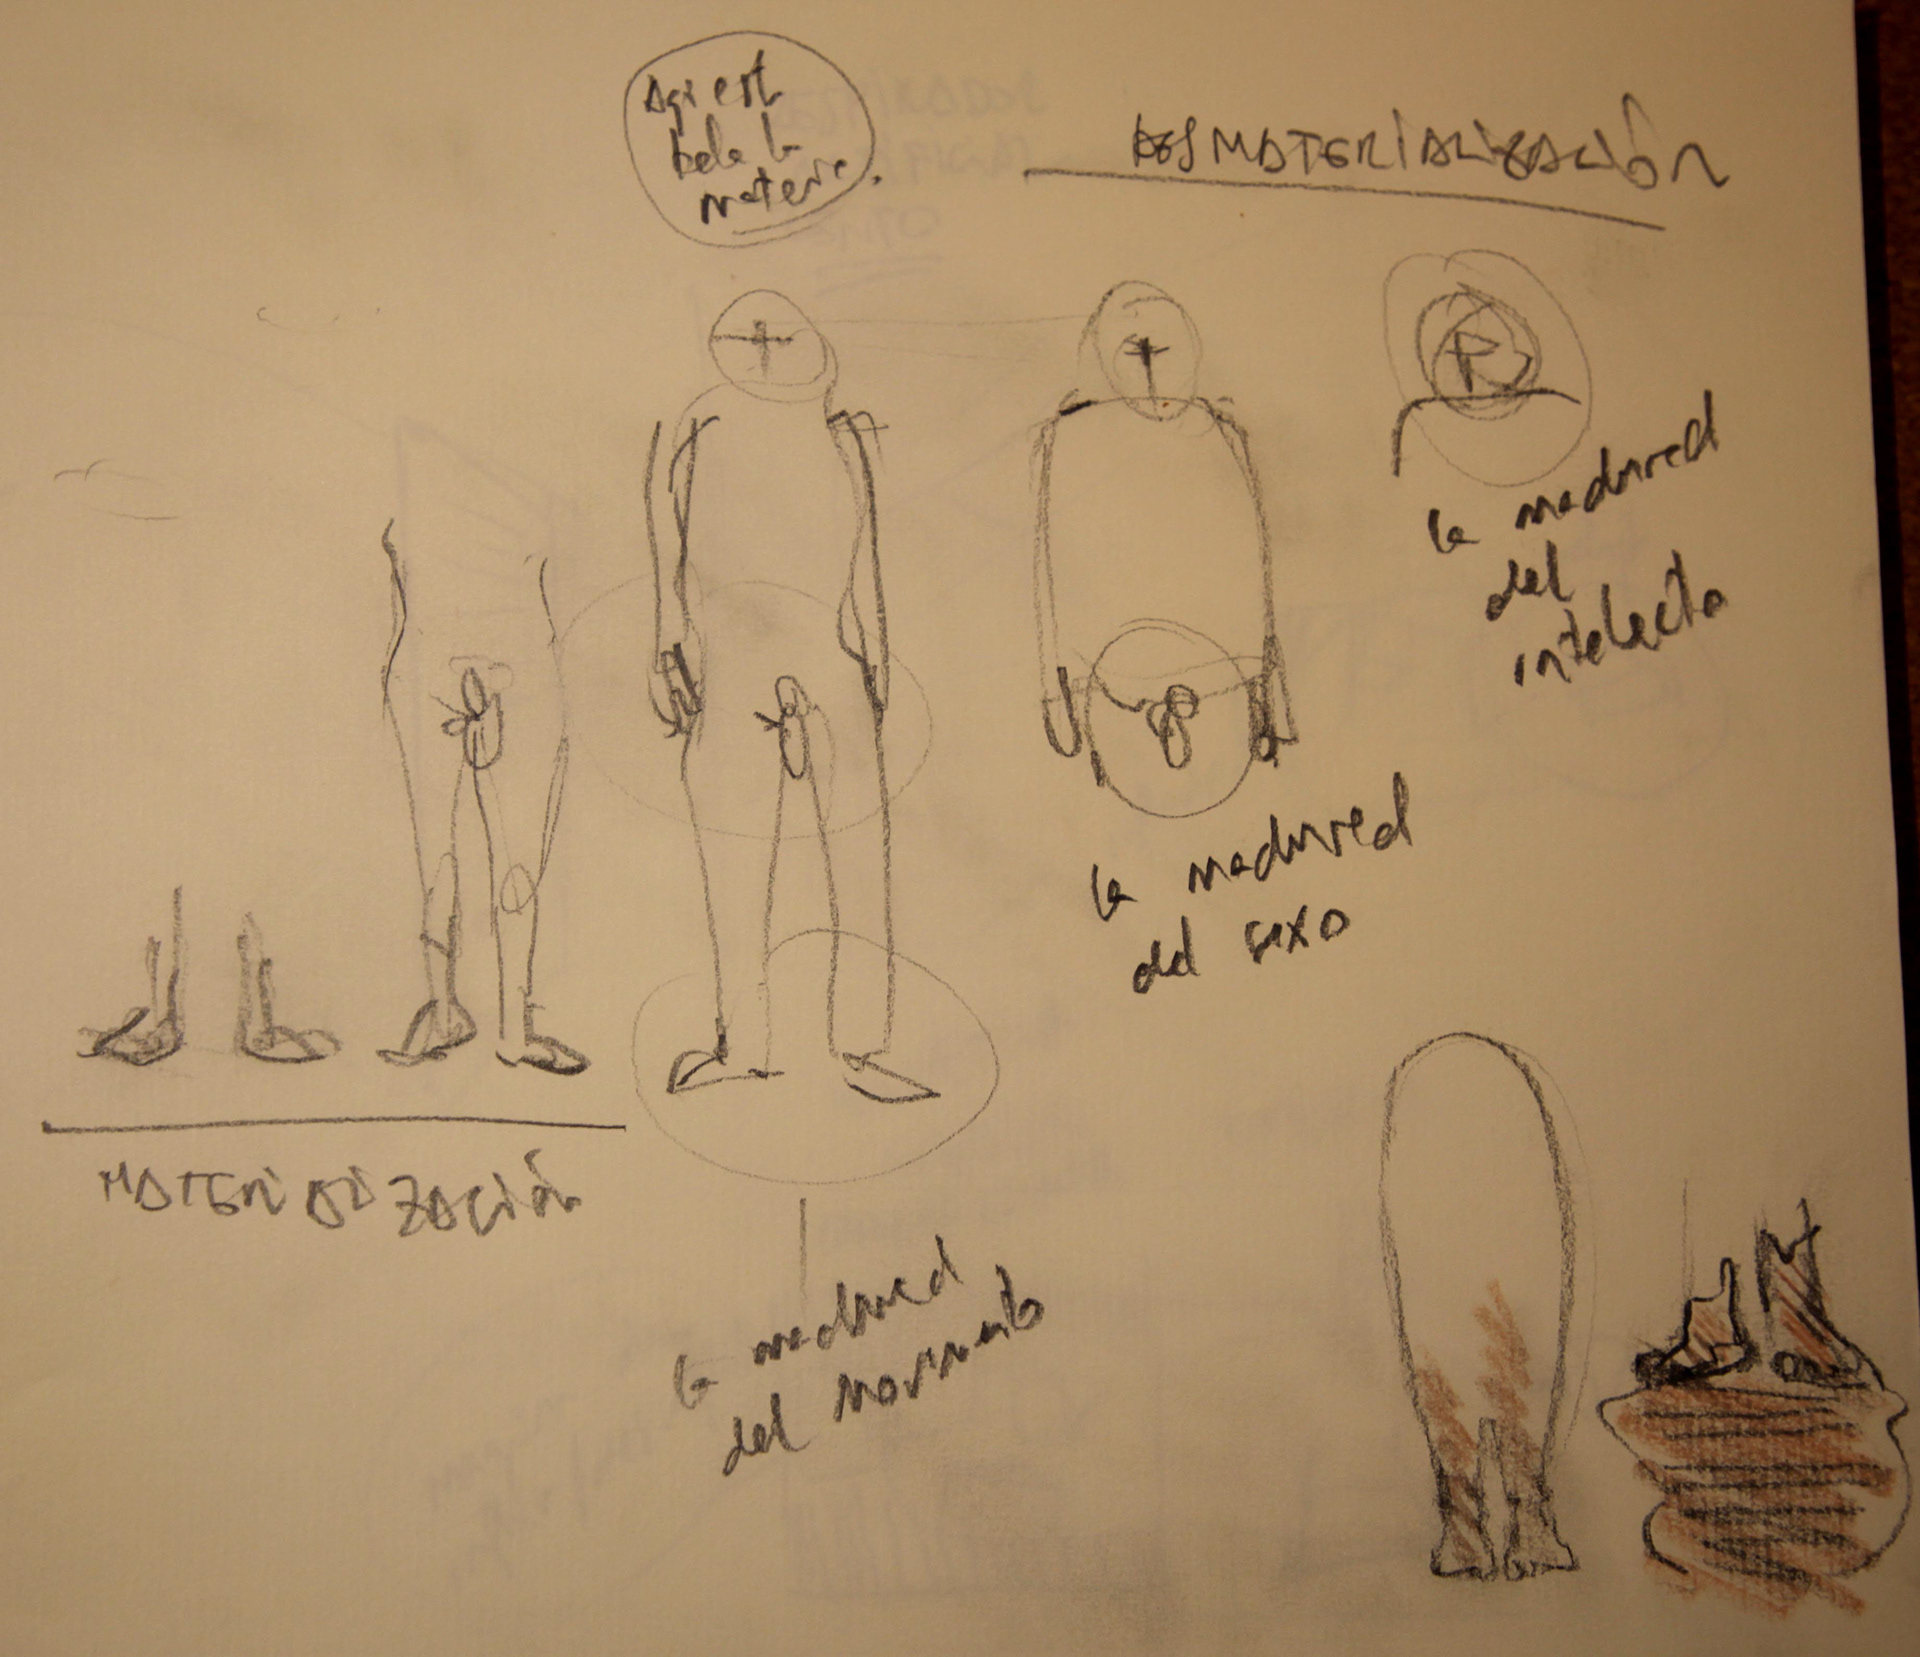 Aqi est
toda la
materia.
DESMATERIALIZACIÓN
la madured
del
intelecto
la madured
del sexo
MATERIALIZACIÓN
la madured
del movimiento